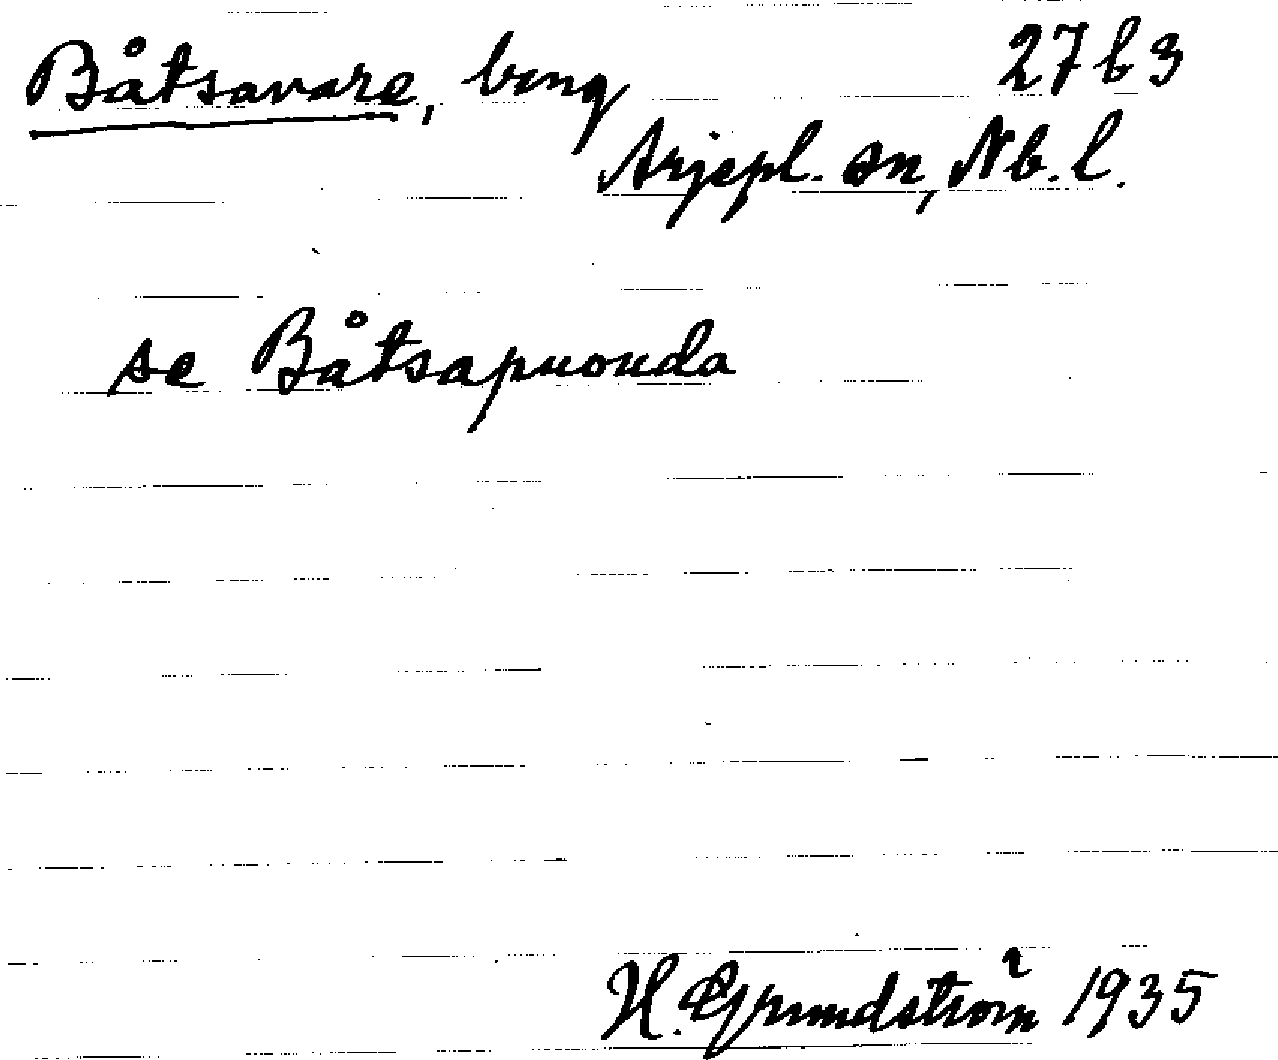 Båtsavare, berg 27 b 3
Arjepl. sn, Nb. l.
se Båtsapuouda
H. Grundström 1935